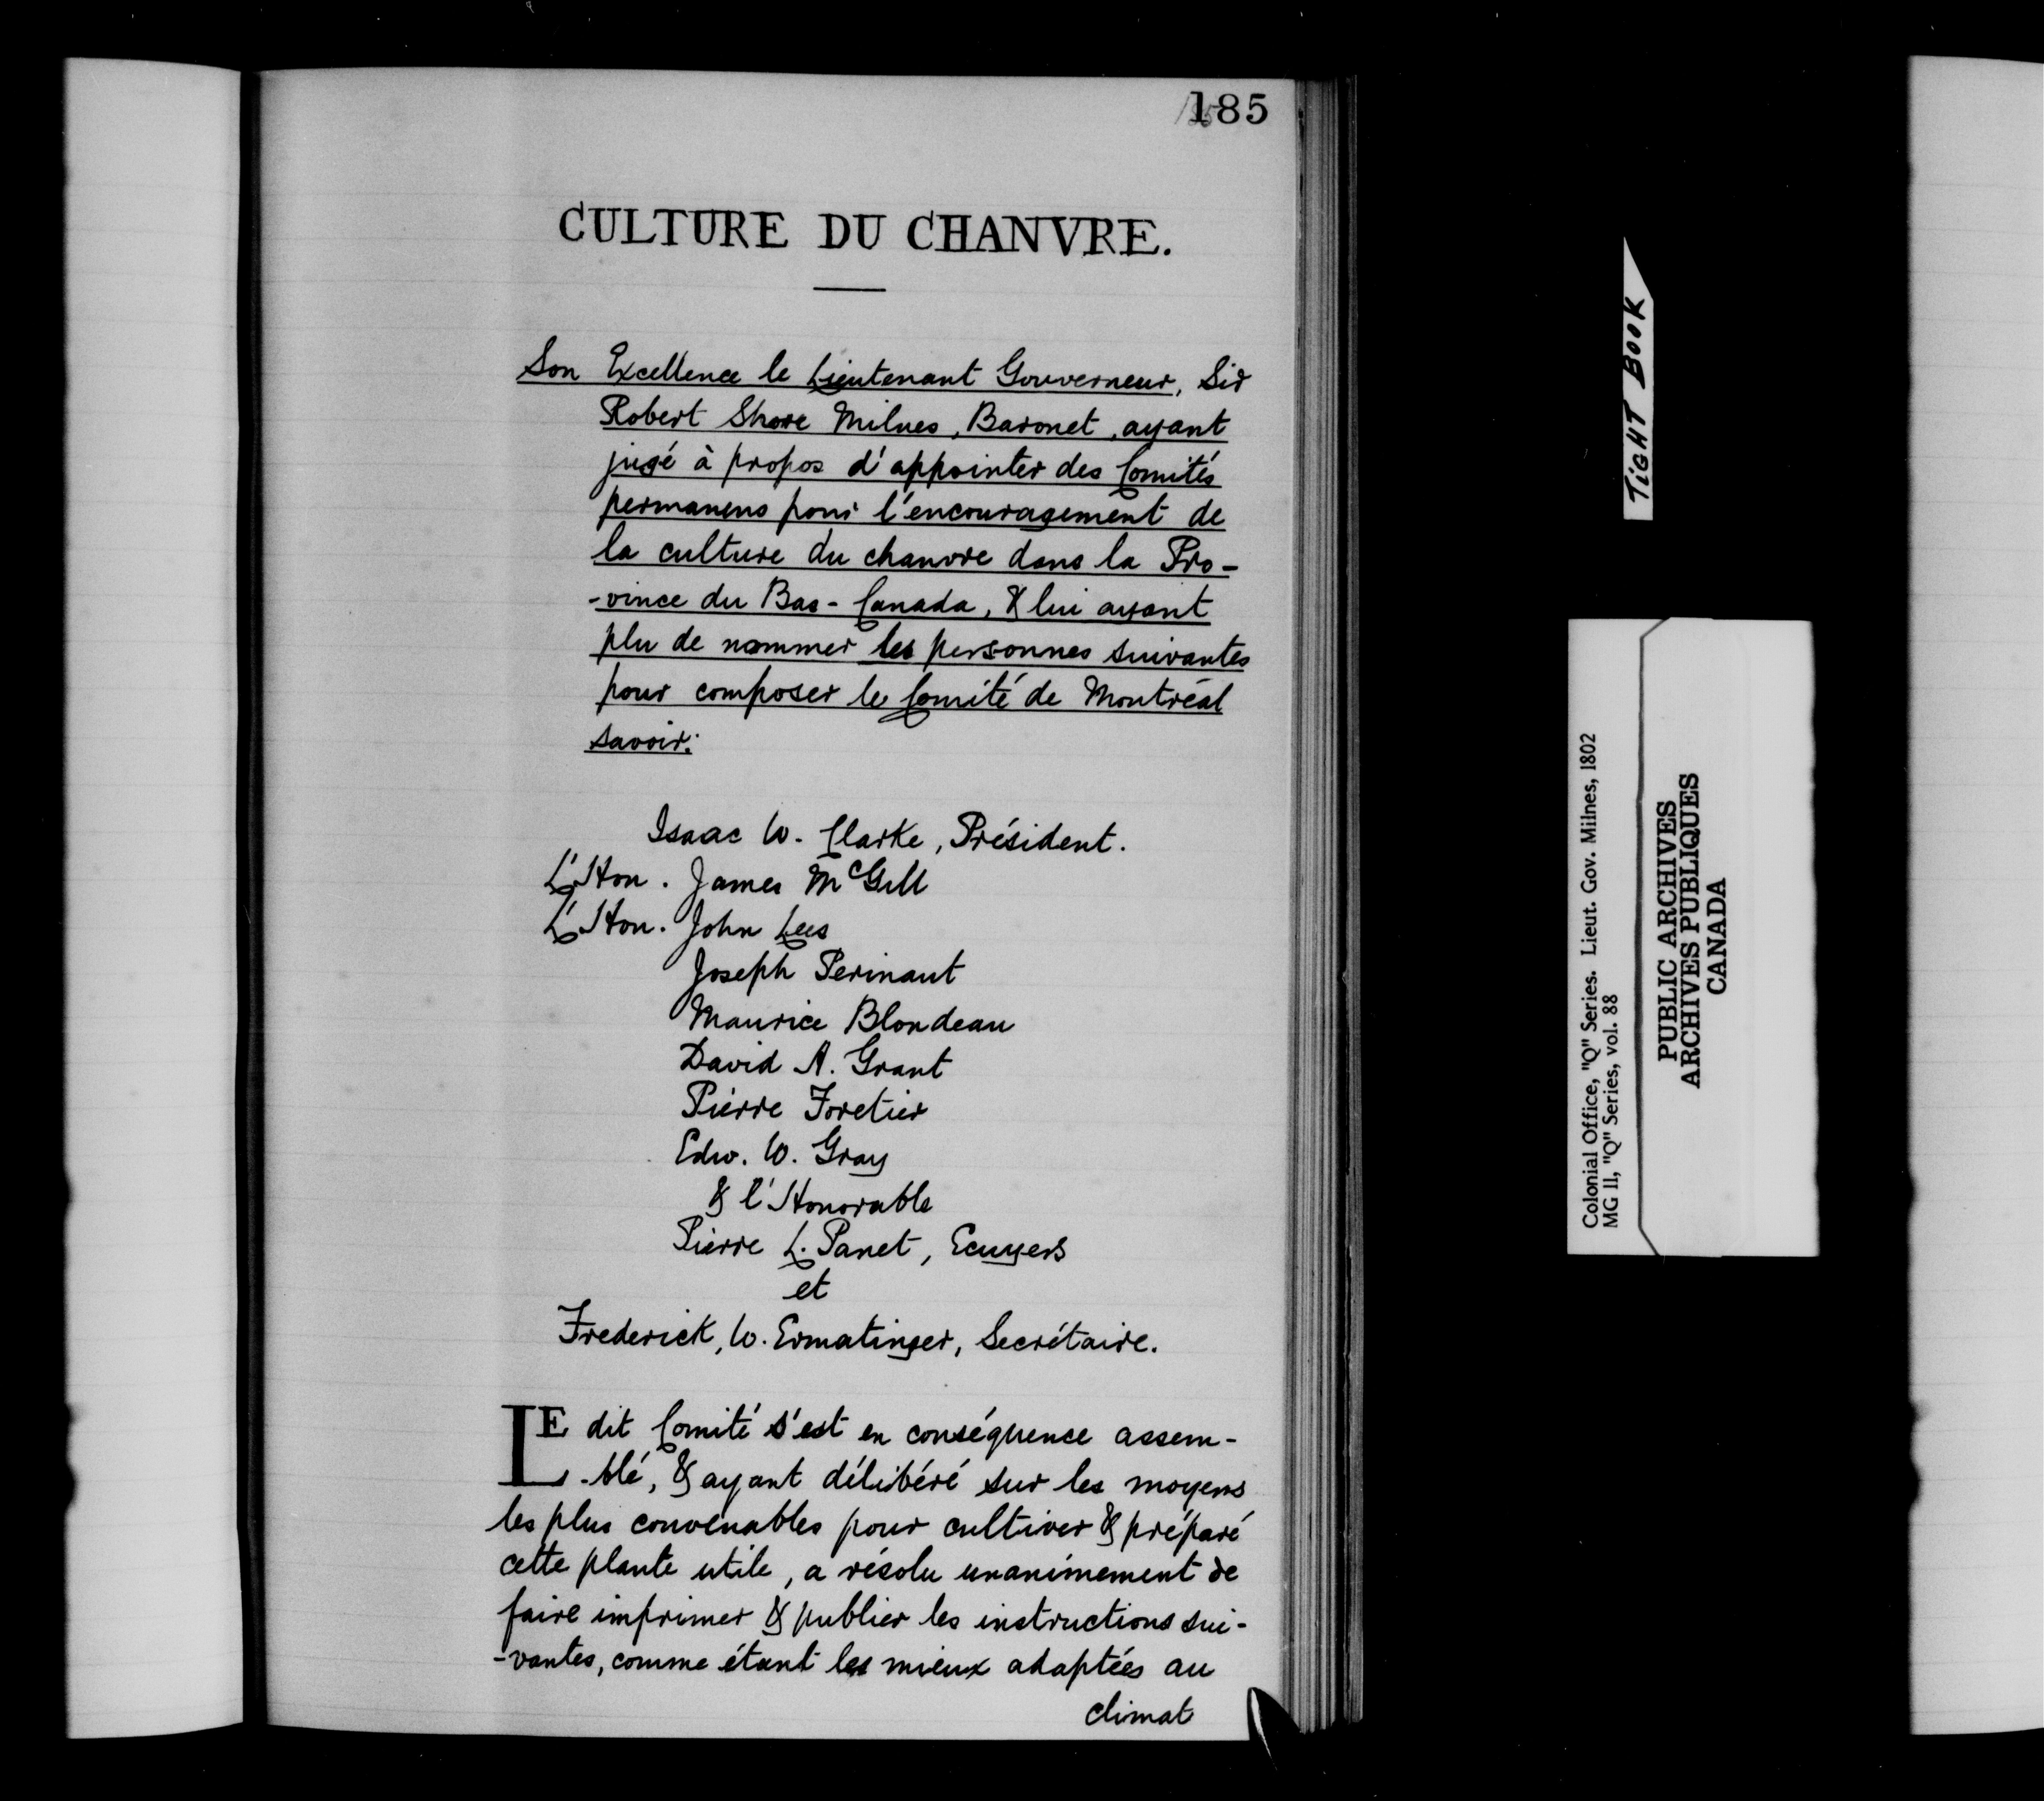 185
CULTURE DU CHANVRE.
Son Excellence le Lieutenant Gouverneur, Sir
Robert Shore Milnes, Baronet, ayant
jugé à propos d'appointer des Comités
permanens pour l'encouragement de
la culture du chanvre dans la Pro-
-vince du Bas-Canada, & lui ayant
plu de nommer les personnes suivantes
pour composer le Comité de Montréal
savoir:
Isaac W. Clarke, Président.
L'Hon. James McGill
L'Hon. John Lees
Joseph Perinaut
Maurice Blondeau
David A. Grant
Pierre Foretier
Edw. W. Gray
& l'Honorable
Pierre L. Panet, Ecuyers
et
Frederick, W. Ermatinger, Secrétaire.
LE dit Comité s'est en conséquence assem-
-blé, & ayant délibéré sur les moyens
les plus convenables pour cultiver & préparé
cette plante utile, a résolu unanimement de
faire imprimer & publier les instructions sui-
-vantes, comme étant les mieux adaptées au
climat
TIGHT BOOK
Colonial Office, "Q" Series. Lieut. Gov. Milnes, 1802
MG 11, "Q" Series, vol. 88
PUBLIC ARCHIVES
ARCHIVES PUBLIQUES
CANADA